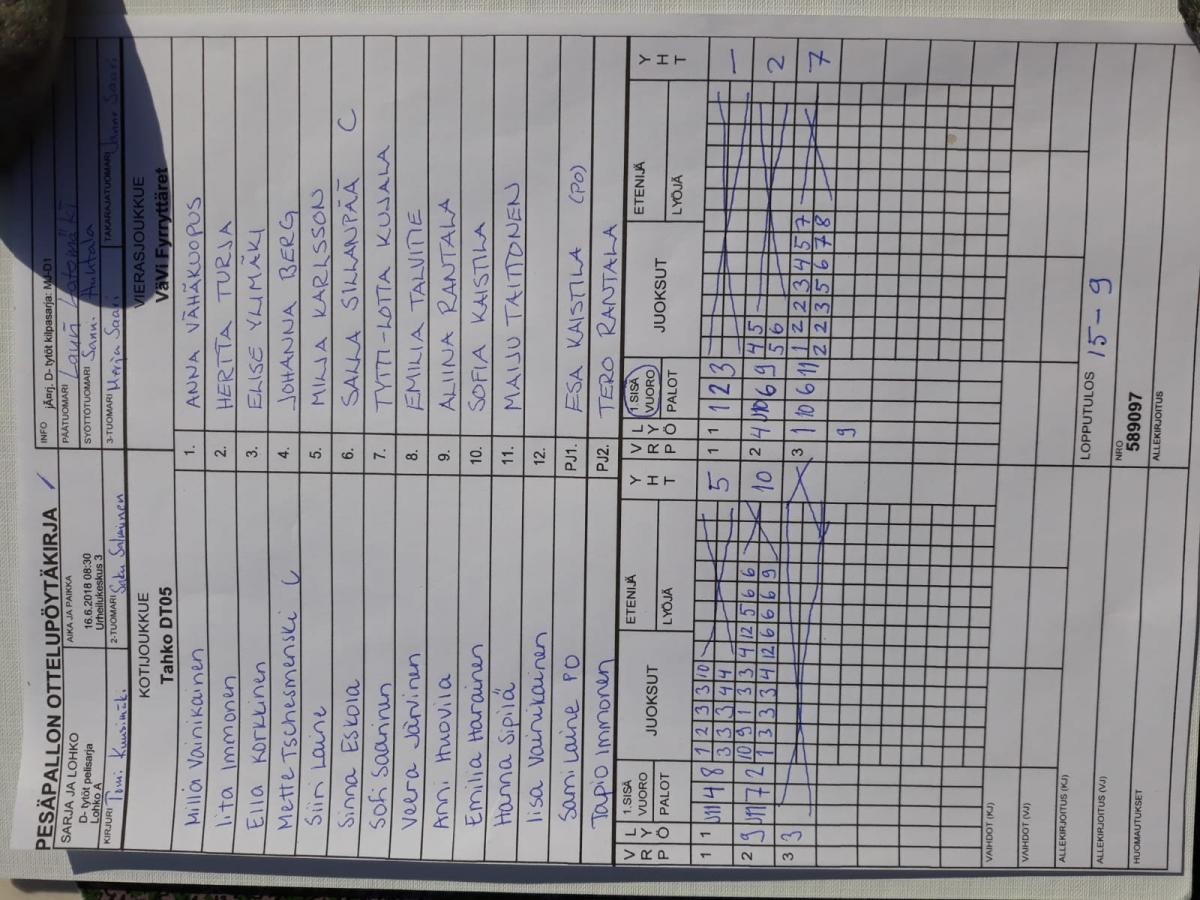 PESÄPALLON OTTELUPÖYTÄKIRJA
SARJA JA LOHKO
D- tytöt pelisarja
Lohko A
AIKA JA PAIKKA
16.6.2018 08:30
Urheilukeskus 3
INFO jÄnrj. D- tytöt kilpasarja: MJ-D1
PÄÄTUOMARI Lauri
SYÖTTÖTUOMARI
KIRJURI Tomi Kuusimäki
2-TUOMARI Saku Salminen
3-TUOMARI Merja Saari
TAKARAJATUOMARI Janne Saari
KOTIJOUKKUE
Tahko DT05
VIERASJOUKKUE
VäVi Fyrryttäret
Milla Vainikainen 1. ANNA VÄHÄKUOPUS
Iita Immonen 2. HERTTA TURJA
Eila Korkkinen 3. ELISE YLIMÄKI
Mette Tschesmenski C 4. JOHANNA BERG
Siiri Laine 5. MILJA KARLSSON
Sinna Eskola 6. SALLA SILLANPÄÄ C
Sofi Saarinen 7. TYTTI-LOTTA KUJALA
Veera Järvinen 8. EMILIA TALVITIE
Anni Huovila 9. ALIINA RANTALA
Emilia Harainen 10. SOFIA KAISTILA
Hanna Sipilä 11. MAIJU TAITONEN
Iisa Vainikainen 12.
Sami Laine PO PJ1. ESA KAISTILA (PO)
Tapio Immonen PJ2. TERO RANTALA
V R P L Y Ö 1.SISÄ VUORO PALOT JUOKSUT ETENIJÄ LYÖJÄ Y H T
V R P L Y Ö 1.SISÄ VUORO PALOT JUOKSUT ETENIJÄ LYÖJÄ Y H T
1 1 4 8 1 2 3 3 10 5
3 3 3 4 4
1 1 1 2 3 –
2 9 7 2 10 9 1 3 3 4 12 5 6 6 10
1 3 3 4 12 6 6 6 9
2 4 10 6 9 4 5 2
5 6
3 3
3 1 10 6 11 1 2 2 3 4 5 7 7
2 2 3 5 6 7 8
9
VAIHDOT (KJ)
VAIHDOT (VJ)
ALLEKIRJOITUS (KJ)
LOPPUTULOS 15 – 9
ALLEKIRJOITUS (VJ)
NRO
589097
HUOMAUTUKSET
ALLEKIRJOITUS